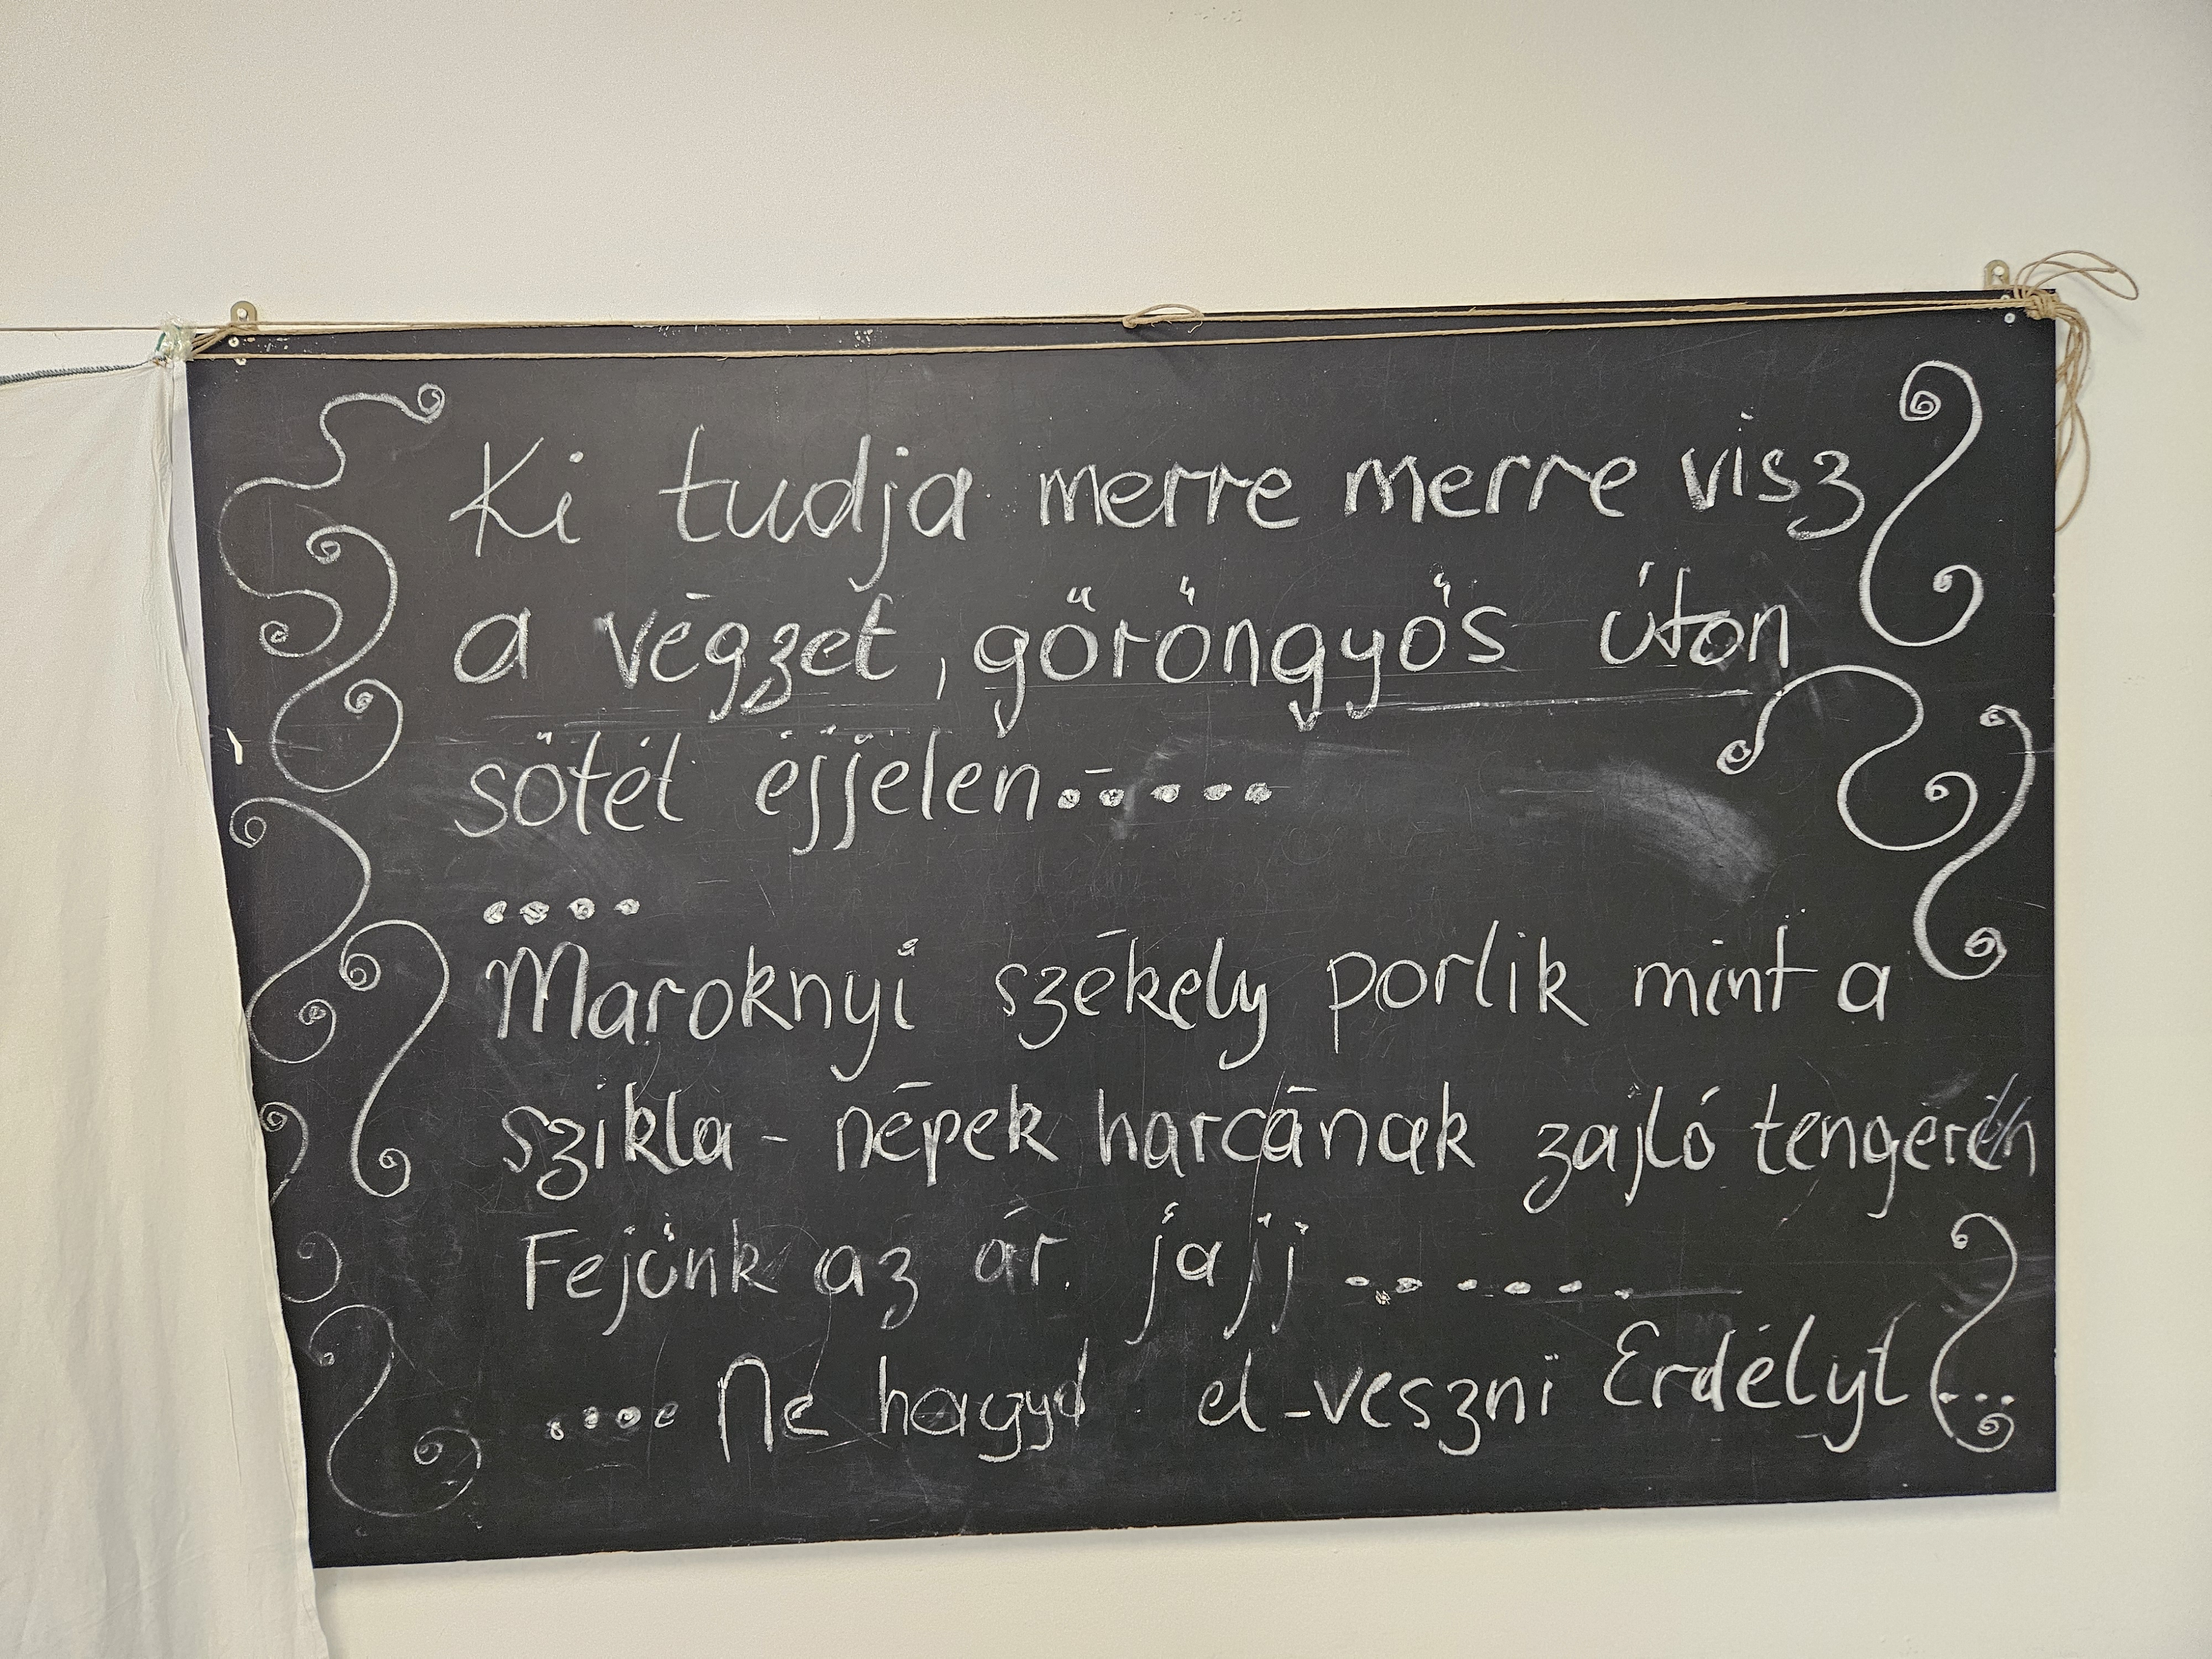 Ki tudja merre merre visz
a végzet, göröngyös úton
sötét éjjelen.....
....
Maroknyi székely porlik mint a
szikla - népek harcának zajló tengerén
Fejünk az ár. jajj ......
.... Ne hagyd el-veszni Erdélyt ...